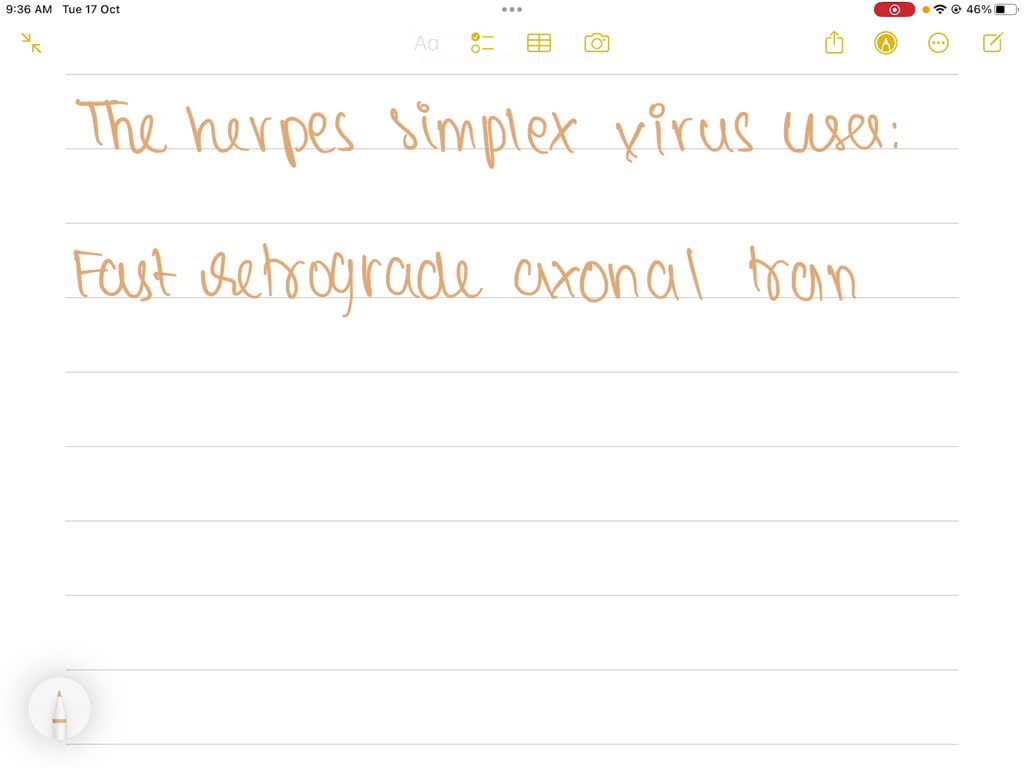 9:36 AM Tue 17 Oct
46%
Aa
The herpes simplex virus uses:
Fast retrograde axonal tran